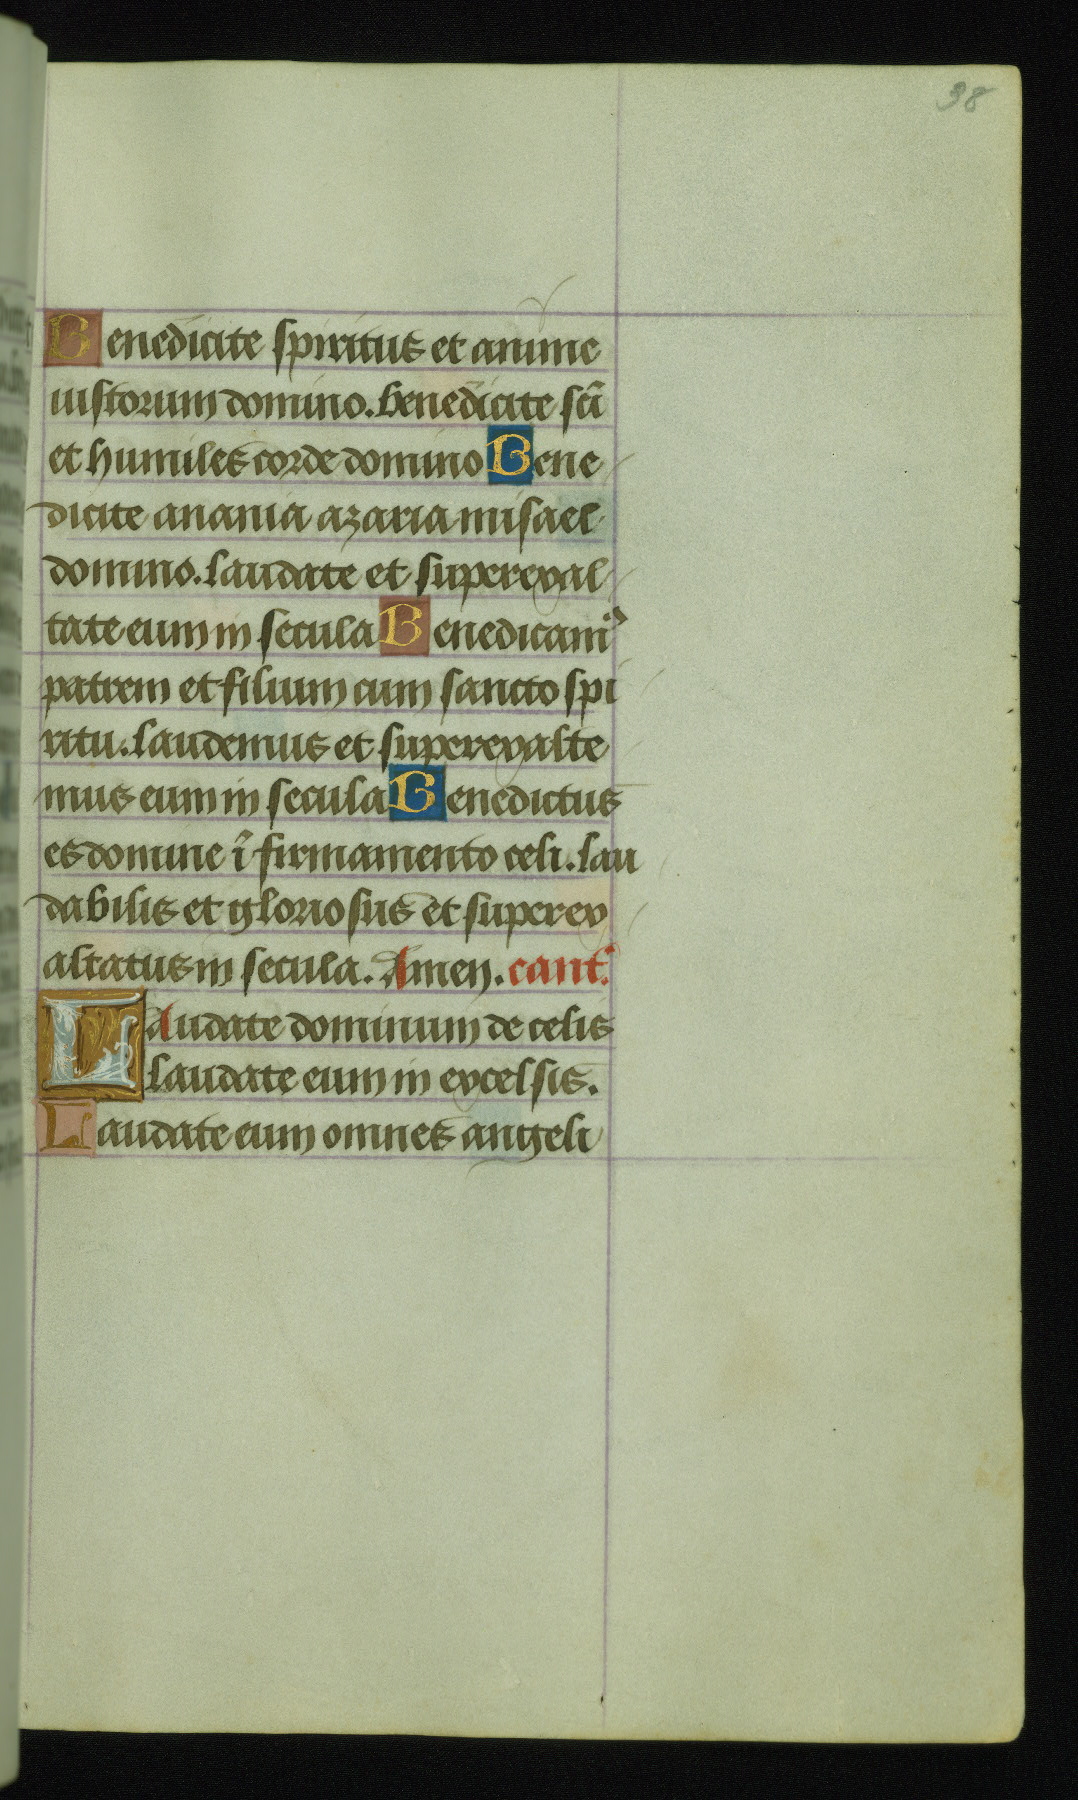 38
Benedicite spiritus et anime
iustorum domino. benedicite scī
et humiles corde domino Bene
dicite anania azaria misael
domino. laudate et superexal
tate eum in secula Benedicamꝰ
patrem et filium cum sancto spi
ritu. laudemus et superexalte
mus eum in secula Benedictus
es domine ī firmamento celi. lau
dabilis et gloriosus et superex
altatus in secula. Amen. cant.
Laudate dominum de celis
laudate eum in excelsis.
Laudate eum omnes angeli